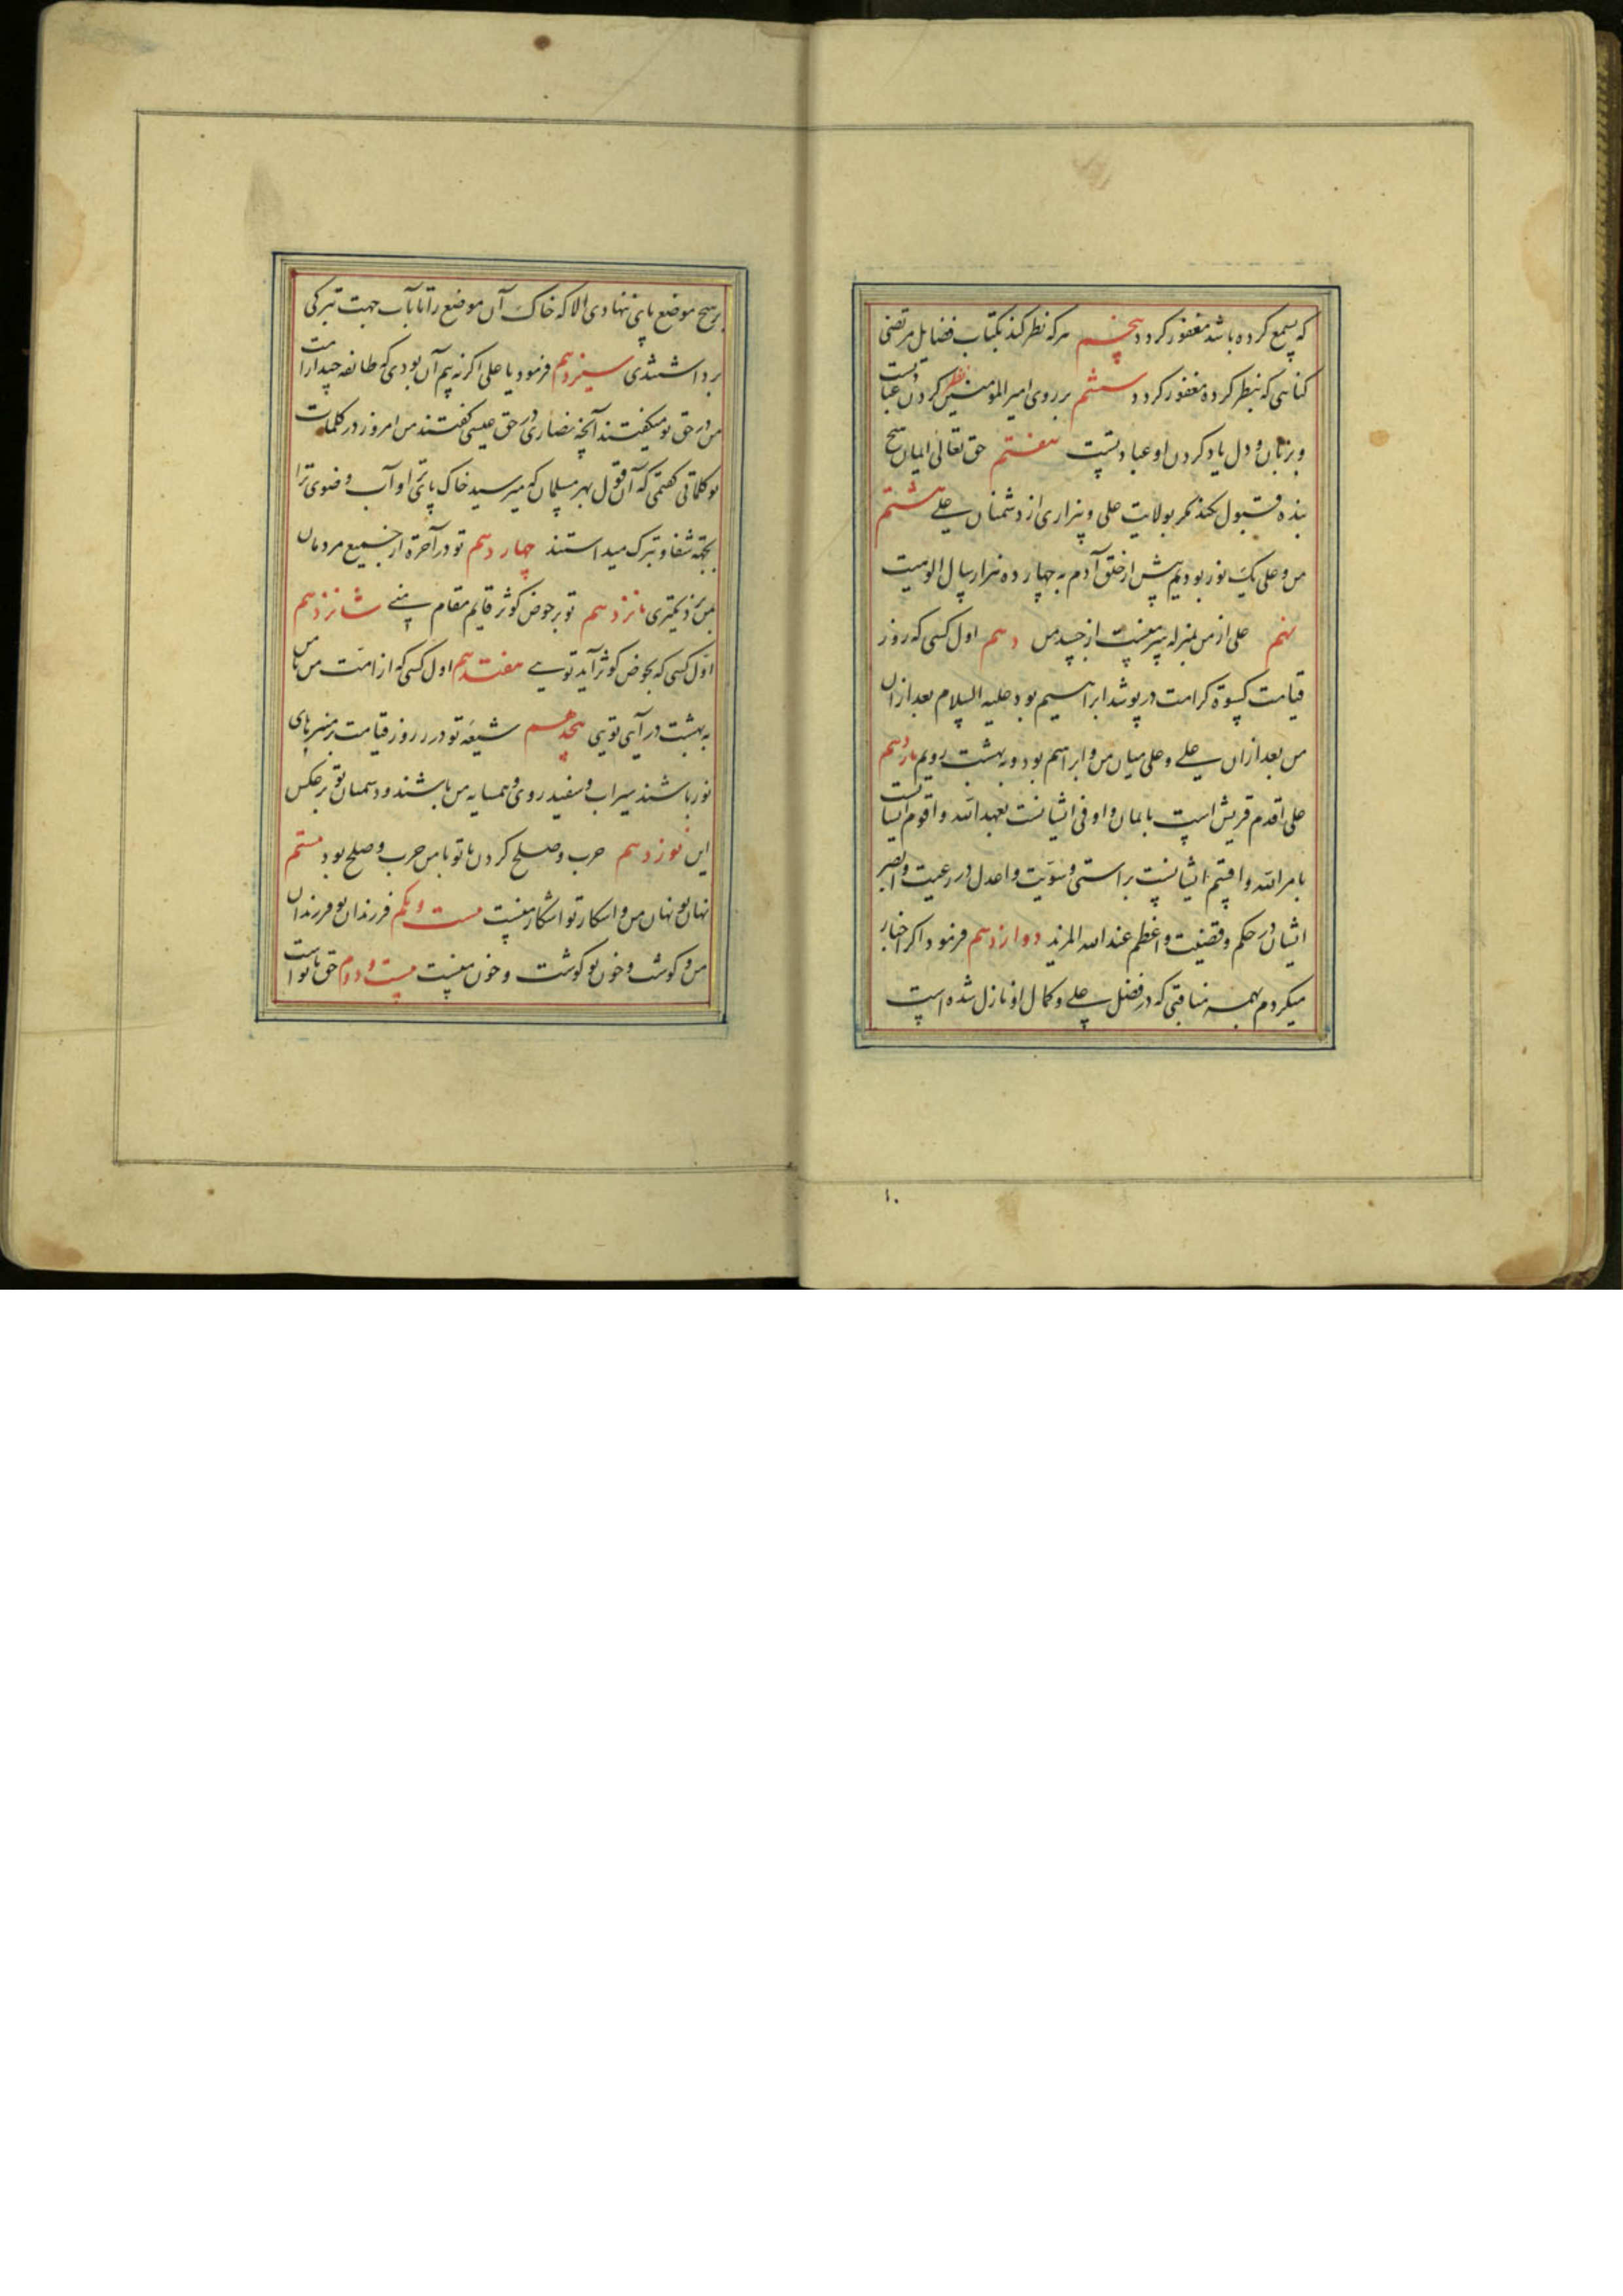 که بسمع کرده باشد مغفور کردد پنجم هرکه نظر کند بکتاب فضایل مرتضی
کناهی که بنظر کرده مغفور کردد ششم بر روی امیر المومنین نظر کردن عبادتست
و بزبان و دل یاد کردن او عبادتست هفتم حق تعالی ایمان هیچ
بنده قبول نکند مکر بولایت علی و بیزاری از دشمنان علی هشتم
من و علی یک نور بودیم پیش از خلق آدم به چهارده هزار سال الوهیت
نهم علی از من بمنزله سر منست از جسد من دهم اول کسی که روز
قیامت کسوة کرامت در پوشد ابراهیم بود علیه السلام بعد ازان
من بعد ازان علی و علی میان من و ابراهیم بود و به بهشت رویم یازدهم
علی اقدم قریش است بایمان و اوفی ایشانست بعهد الله و اقوم ایشانست
بامر الله و اقسم ایشانست براستی و سویت و اعدل در رعیت و ابصر
ایشان در حکم و قضیت و اعظم عند الله المزید دوازدهم فرمود اکر اخبار
میکردم بهمه مناقبی که در فضل علی و کمال او نازل شده است
۱۰
بر هیچ موضع پای ننهادی الا که خاک آن موضع را تا بآب جهت تبرکی
برداشتندی سیزدهم فرمود یا علی اکر نه بیم آن بودی که طائفه چند از امت
من در حق تو میکفتند آنچه نصاری در حق عیسی کفتند من امروز در کلمات
تو کلماتی کفتمی که آن قول بهر مسلمان که میرسید خاک پای او آب وضوی ترا
بجهة شفا و تبرک میداشتند چهاردهم تو در آخرة از جمیع مردمان
بمن نزدیکتری پانزدهم تو بر حوض کوثر قایم مقام منی شانزدهم
اول کسی که بحوض کوثر آید تویی هفتدهم اول کسی که از امت من با من
به بهشت در آیی تویی هجدهم شیعه تو در روز قیامت بر منبرهای
نور باشند سیراب و سفید روی و همسایه من باشند و دشمنان تو بر عکس
این نوزدهم حرب و صلح کردن با تو با من حرب و صلح بود بیستم
نهان تو نهان من و اشکار تو اشکار منست بیست و یکم فرزندان تو فرزندان
من و کوشت و خون تو کوشت و خون منست بیست و دوم حق با تو است